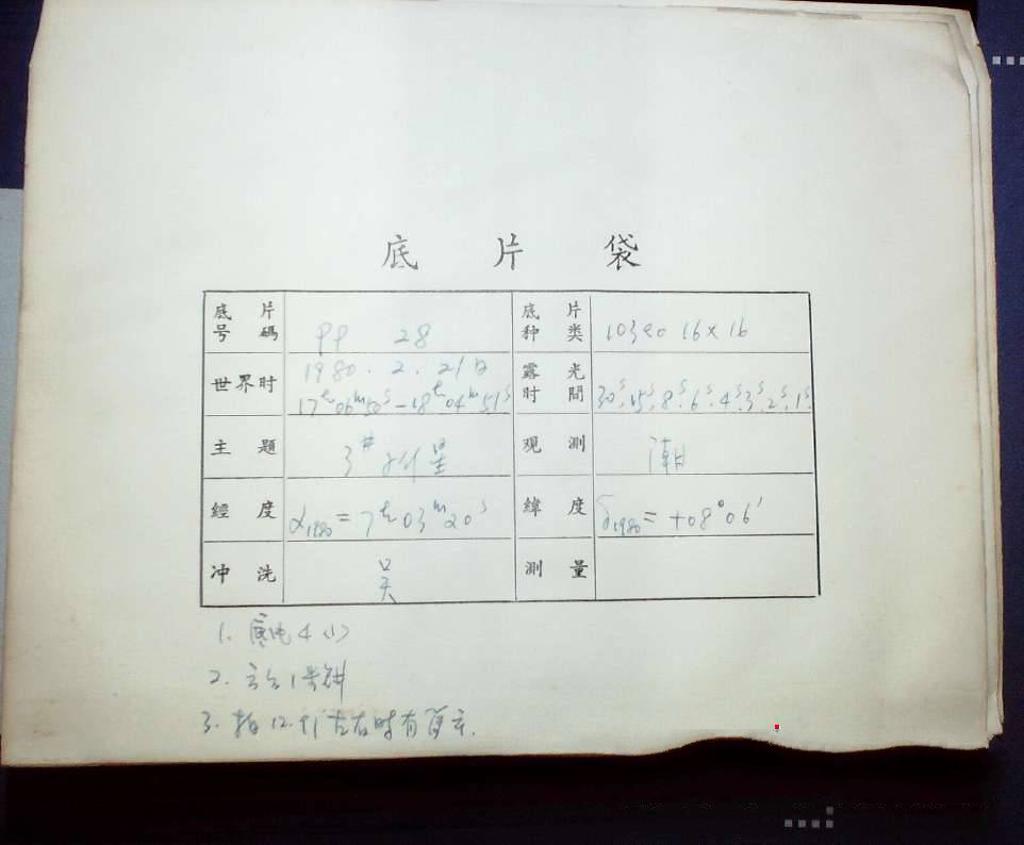 底 片 袋
底 片
号 碼
PP 28
底 片
种 类
103aO 16×16
世界时
1980.2.21日
17h06m50s-18h04m51s
露 光
时 間
30s.15s.8s.6s.4s.3s.2s.1s.
主 題
3#
星
观 測
潮
經 度
α1980=7h03m20s
緯 度
δ1980=+08°06′
冲 洗
吴
測 量
1.
4
2.
1号钟
3. 拍12.5
左右时有薄云.